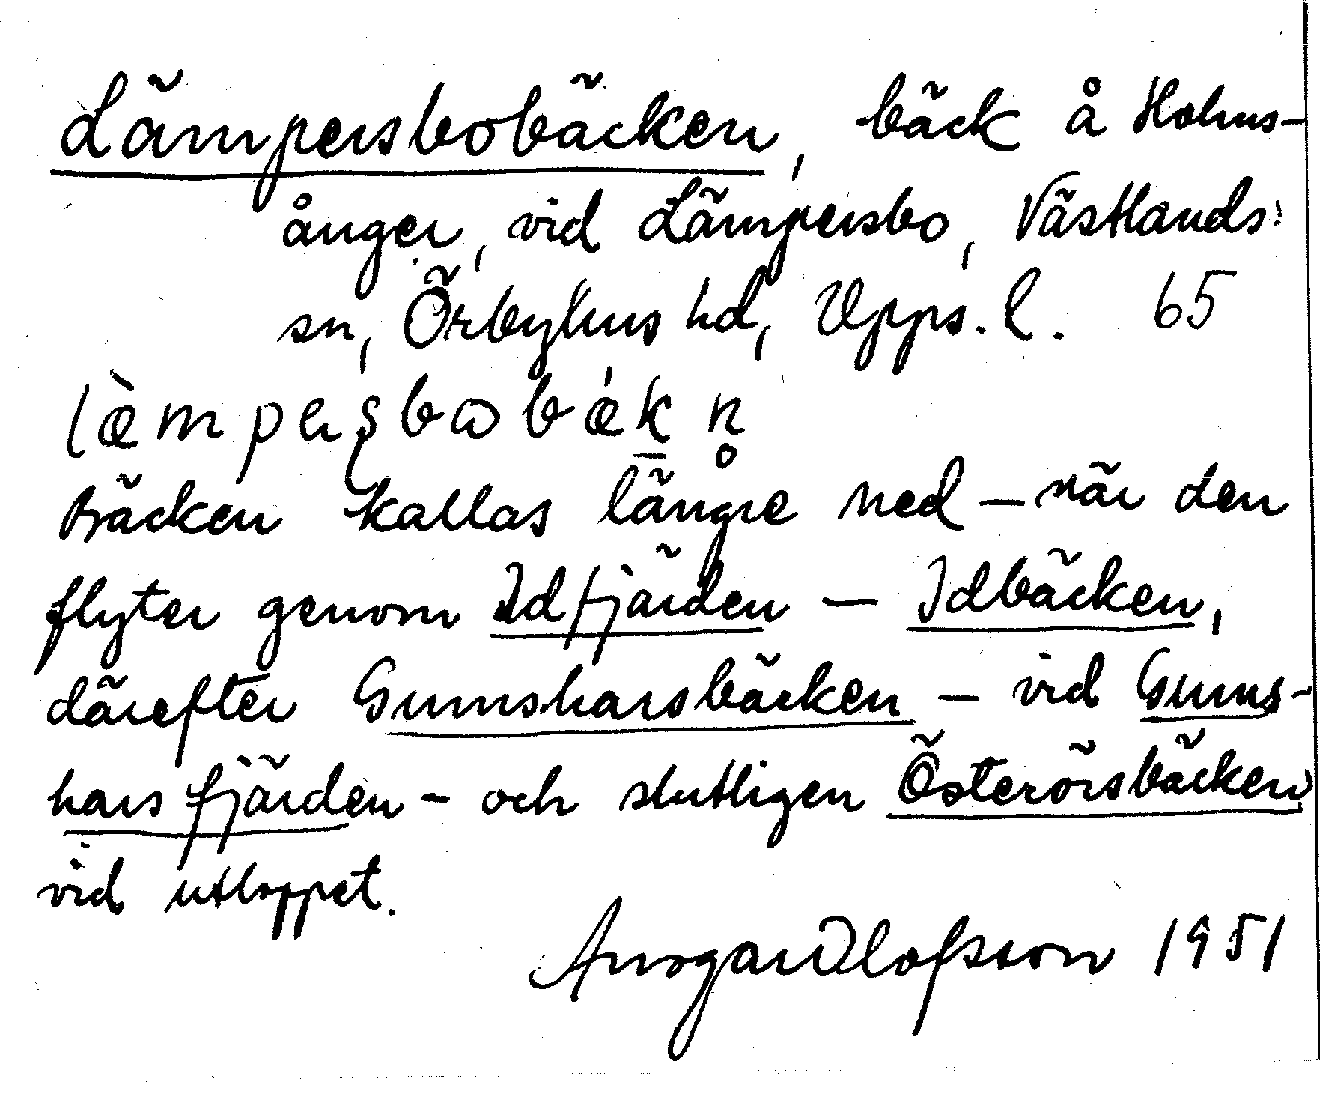 Lämpersbobäcken, bäck å Holms-
ånger, vid Lämpersbo, Västlands
sn, Örbyhus hd, Upps. l. 65
Bäcken kallas längre ned – när den
flyter genom Idfjärden – Idbäcken,
därefter Gumsharsbäcken – vid Gums-
harsfjärden – och slutligen Österörsbäcken
vid utloppet.
Ansgar Olofsson 1951